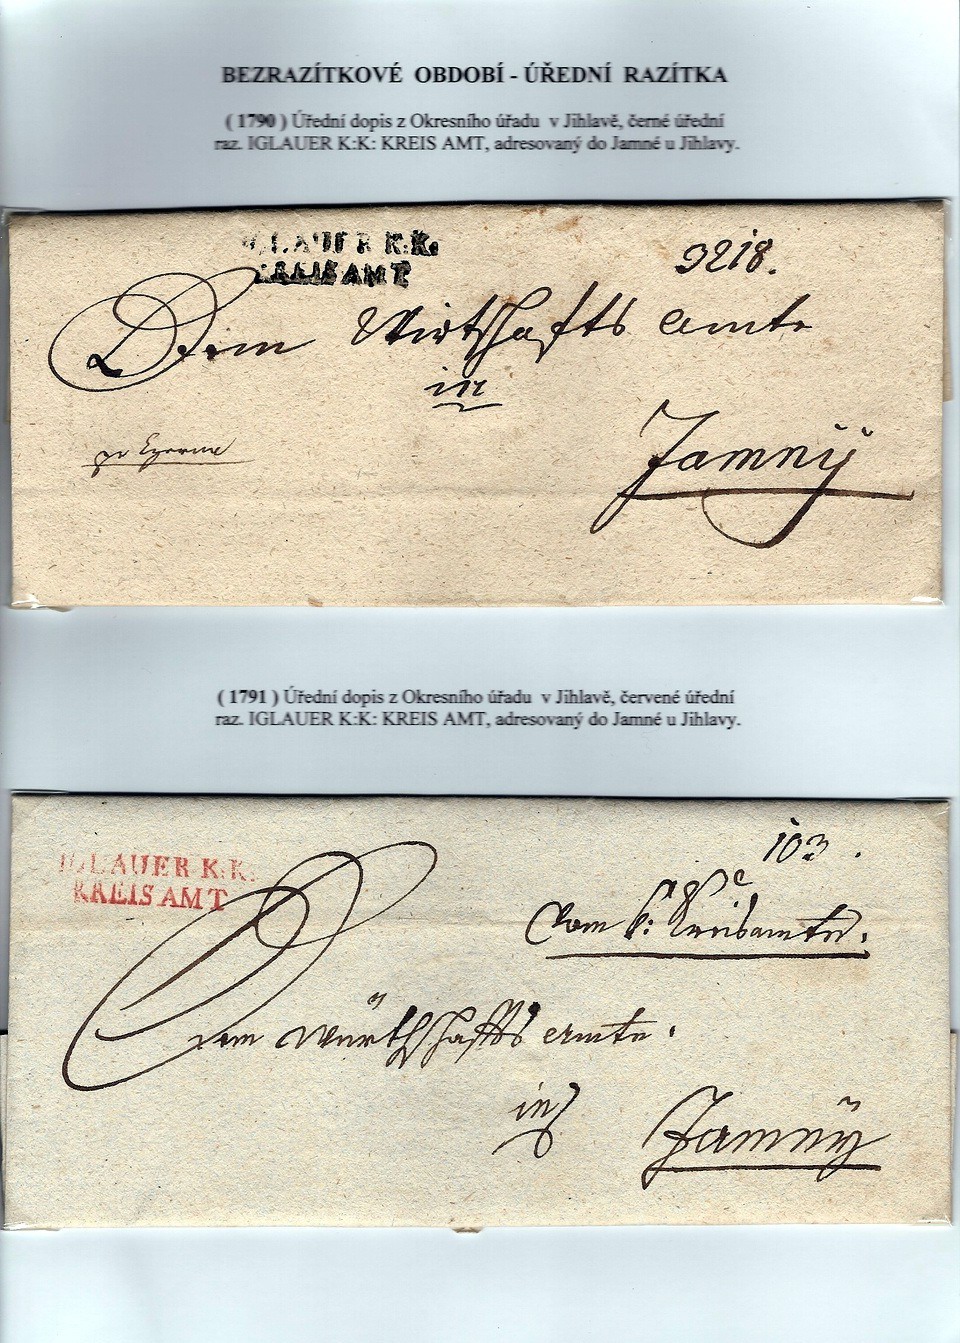 BEZRAZÍTKOVÉ OBDOBÍ - ÚŘEDNÍ RAZÍTKA
( 1790 ) Úřední dopis z Okresního úřadu v Jihlavě, černé úřední
raz. IGLAUER K:K: KREIS AMT, adresovaný do Jamné u Jihlavy.
IGLAUER K:K:
KREIS AMT
9218.
Dem Wirtschafts Amte
in
Jamný
( 1791 ) Úřední dopis z Okresního úřadu v Jihlavě, červené úřední
raz. IGLAUER K:K: KREIS AMT, adresovaný do Jamné u Jihlavy.
IGLAUER K:K:
KREIS AMT
103.
Vom k: Kreisamte.
Dem Würthschafts Amte.
in
Jamnÿ